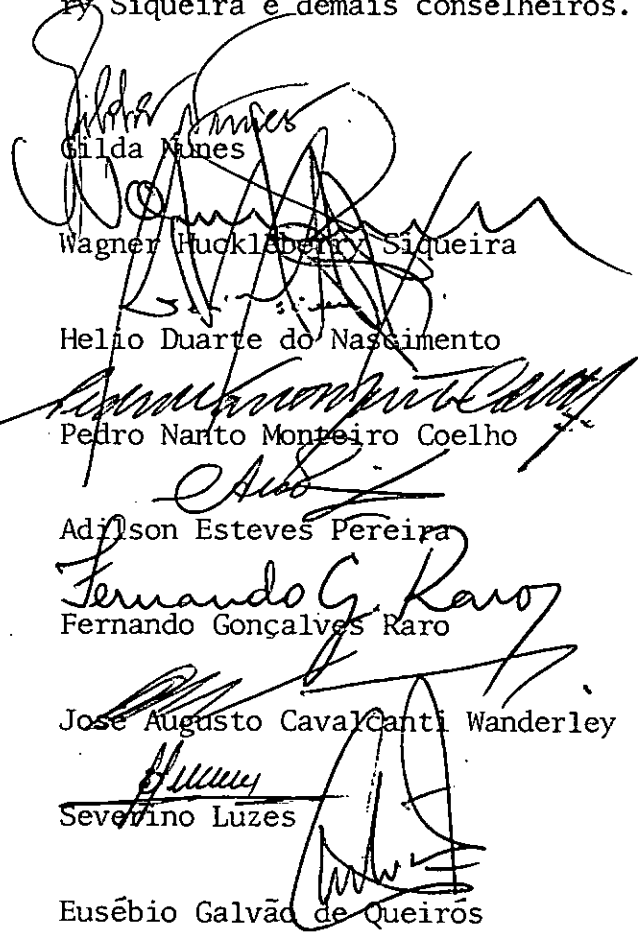 ry Siqueira e demais conselheiros.
Gilda Nunes
Gilda Nunes
Wagner Huckleberry Siqueira
Helio Duarte do Nascimento
Pedro Nanto Monteiro Coelho
Adilson Esteves Pereira
Fernando G. Raro
Fernando Gonçalves Raro
José Augusto Cavalcanti Wanderley
Severino Luzes
Eusébio Galvão de Queirós